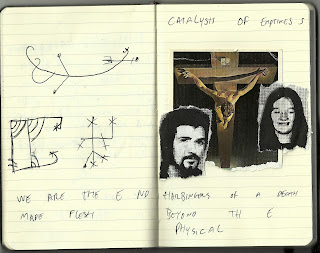 CATALYSIS OF EMPTINESS
WE ARE THE END HARBINGERS OF A DEATH
MADE FLESH BEYOND THE
PHYSICAL